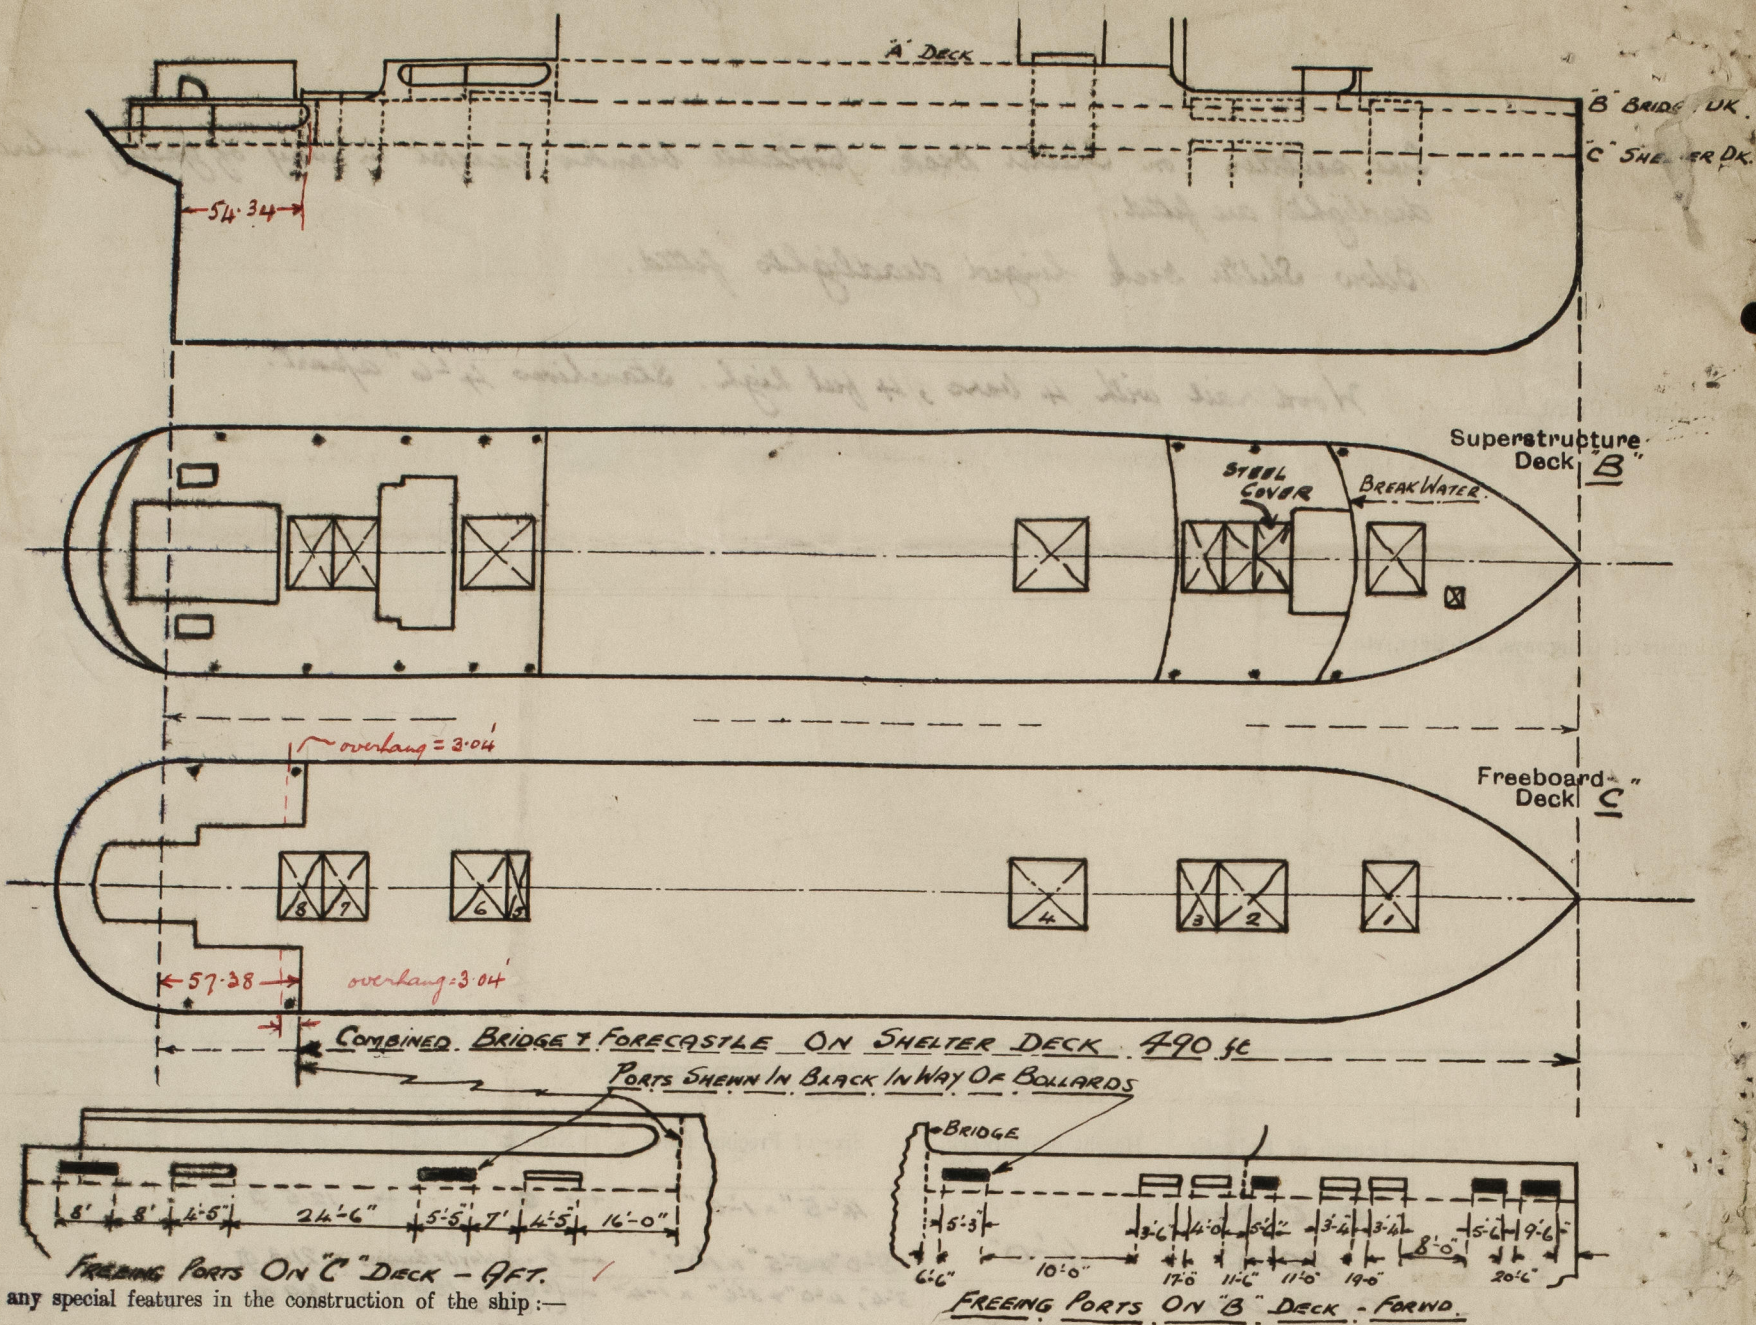 "A" DECK
"B" BRIDGE DK.
"C" SHELTER DK.
54.34
Superstructure
Deck "B"
STEEL
COVER
BREAK WATER.
overhang = 3.04'
Freeboard
Deck "C"
8 7 6 5 4 3 2 1
57.38
overhang = 3.04'
COMBINED BRIDGE & FORECASTLE ON SHELTER DECK 490 ft
PORTS SHEWN IN BLACK IN WAY OF BOLLARDS
BRIDGE
8' 8' 4'-5" 24'-6" 5'-5" 7' 4'-5" 16'-0"
5'-3" 3'-6" 4'-0" 5'-6" 3'-4" 3'-4" 5'-6" 9'-6"
6'-6" 10'-0" 17'-0" 11'-6" 11'-0" 19-0" 8'-0" 20'-6"
FREEING PORTS ON "C" DECK - AFT.
FREEING PORTS ON "B" DECK - FORWD.
any special features in the construction of the ship :—